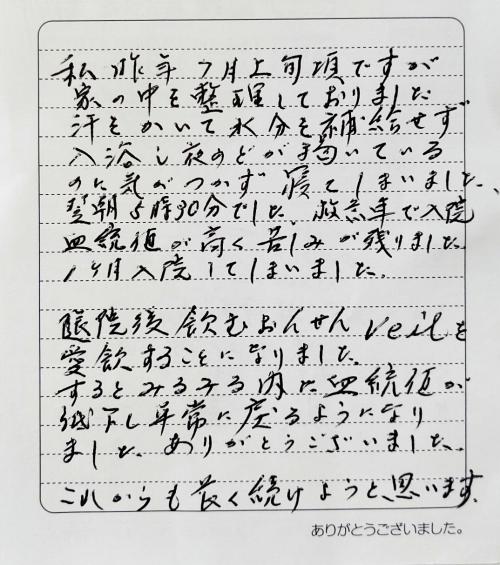 私昨年7月上旬頃ですが
家の中を整理しておりました
汗をかいて水分を補給せず
入浴し夜のどが渇いている
のに気がつかず寝てしまいました、
翌朝5時30分でした、救急車で入院
血統値が高く苦しみが残りました
1ヶ月入院してしまいました、
退院後飲むおんせんveilを
愛飲することになりました
するとみるみる内に血統値が
低下し异常に戻るようになり
ました、ありがとうございました、
これからも長く続けようと思います。
ありがとうございました。